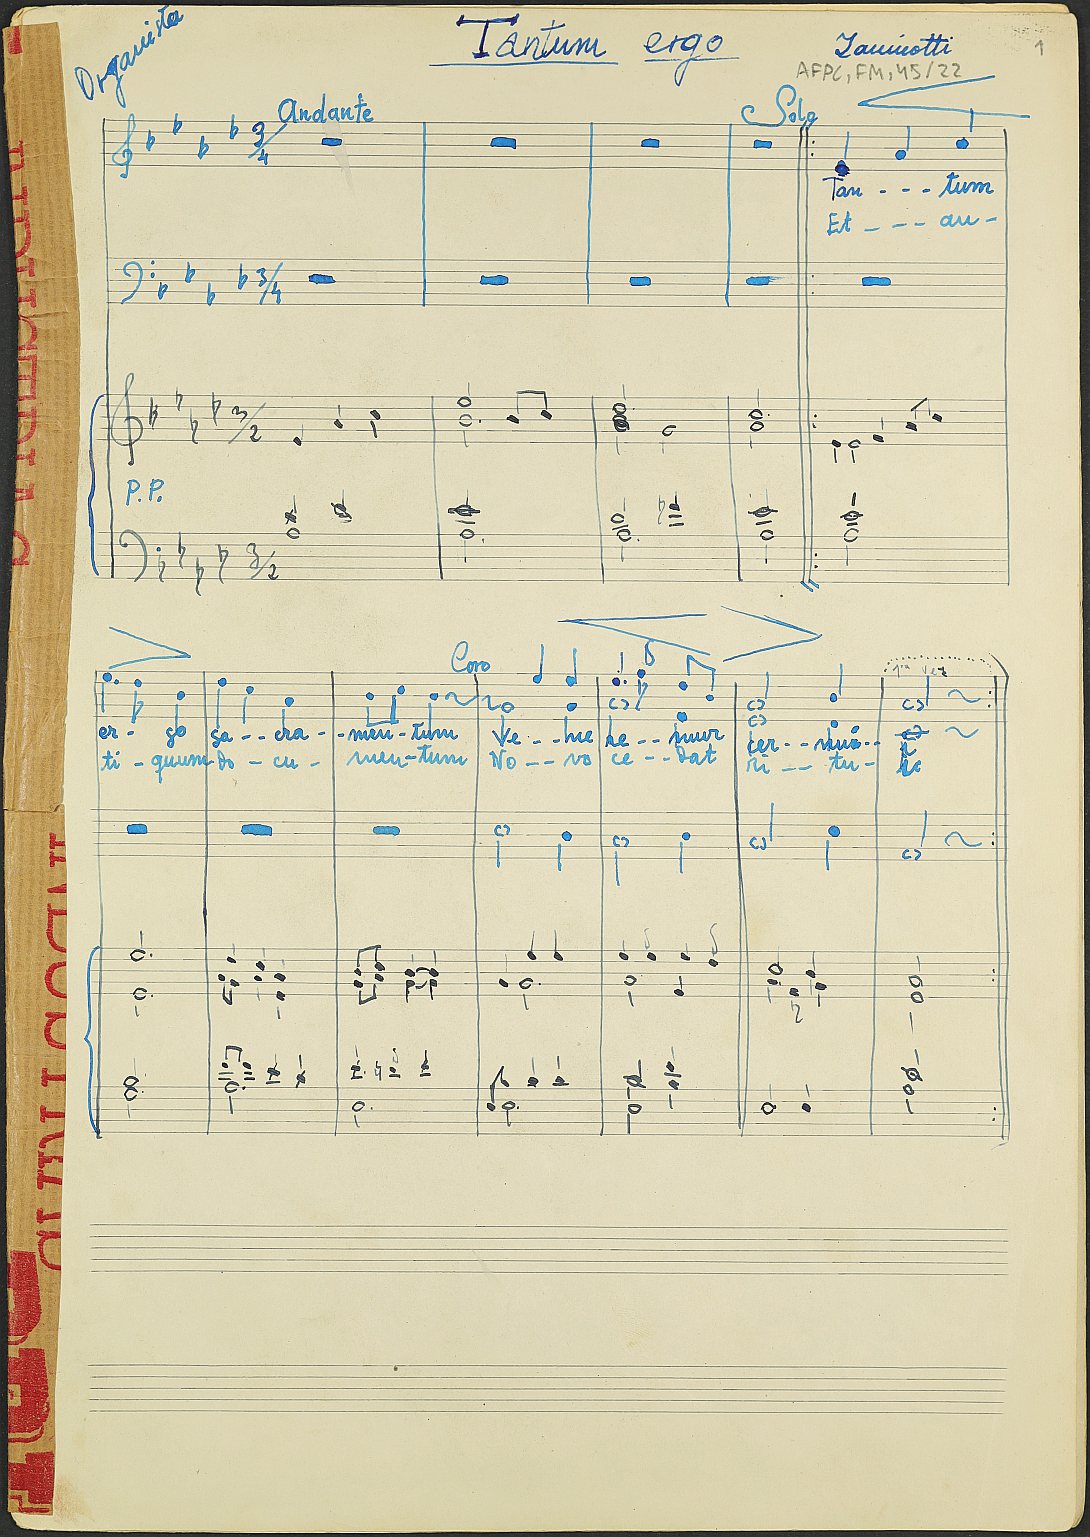 Organista
Tantum ergo
Zaninotti
AFPC, FM, 45/22
1
Andante
Solo
3/4
Tan - - - tum
Et - - - an -
3/4
3/2
P.P.
3/2
Coro
1ª vez
er - go sa - - cra - - men - tum Ve - - ne
ti - quum do - cu - men - tum No - - vo ce - - dat ri - - tu -